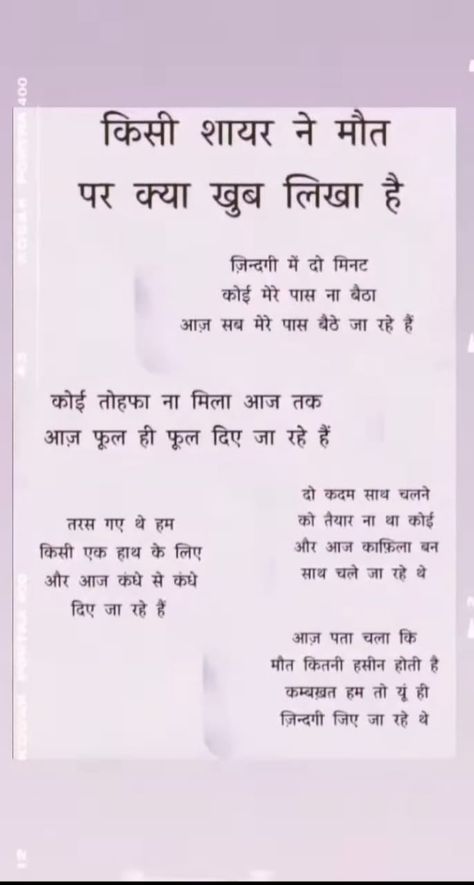 किसी शायर ने मौत
पर क्या खुब लिखा है
ज़िन्दगी में दो मिनट
कोई मेरे पास ना बैठा
आज़ सब मेरे पास बैठे जा रहे हैं
कोई तोहफा ना मिला आज तक
आज़ फूल ही फूल दिए जा रहे हैं
तरस गए थे हम
किसी एक हाथ के लिए
और आज कंधे से कंधे
दिए जा रहे हैं
दो कदम साथ चलने
को तैयार ना था कोई
और आज काफ़िला बन
साथ चले जा रहे थे
आज़ पता चला कि
मौत कितनी हसीन होती है
कम्बख़त हम तो यूं ही
ज़िन्दगी जिए जा रहे थे